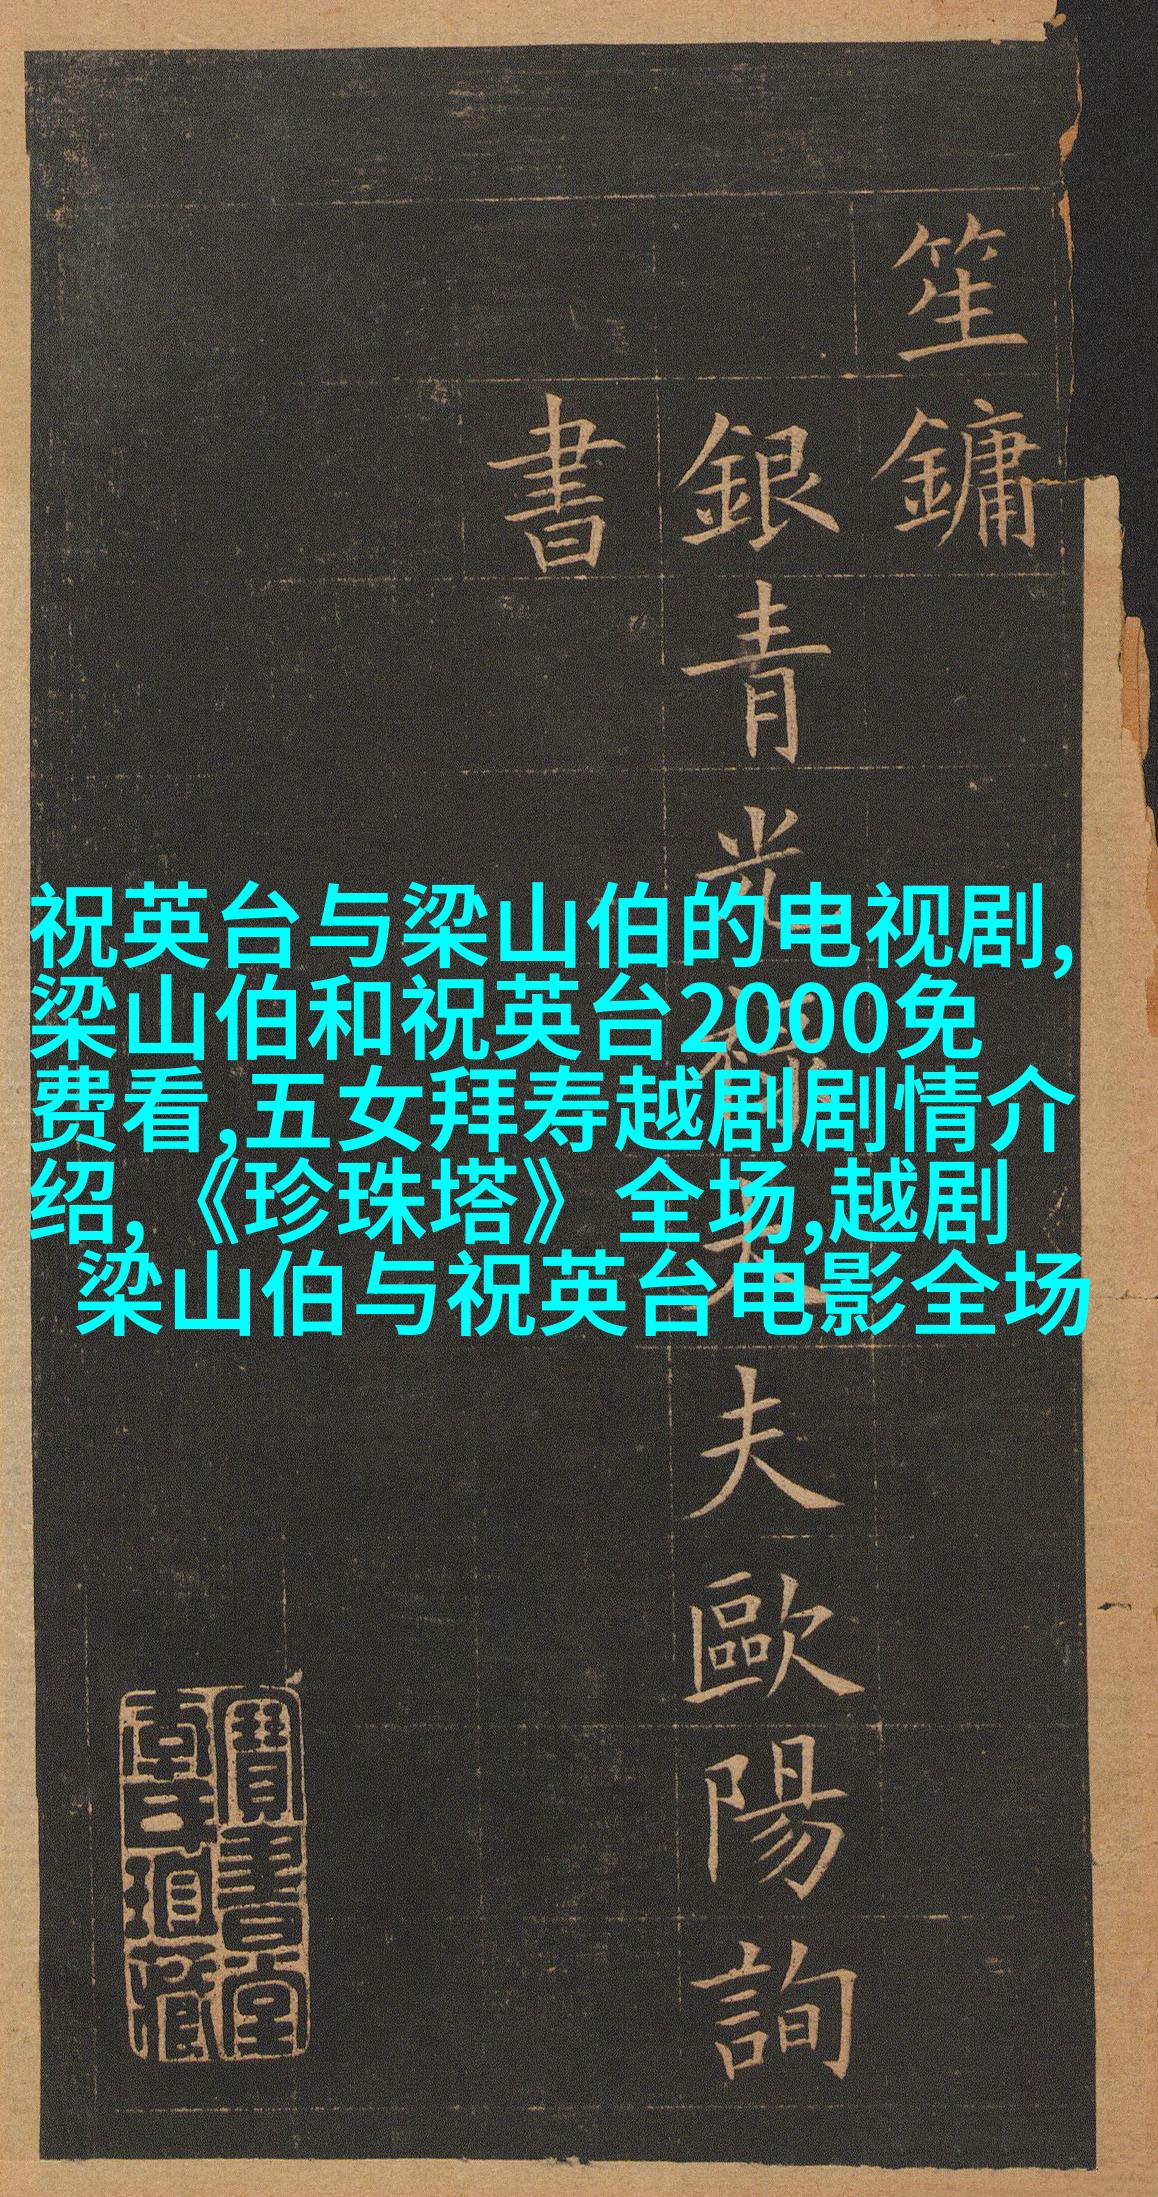 笙鏞
銀青光祿大夫歐陽詢
書
祝英台与梁山伯的电视剧,
梁山伯和祝英台2000免
费看,五女拜寿越剧剧情介
绍,《珍珠塔》全场,越剧
梁山伯与祝英台电影全场